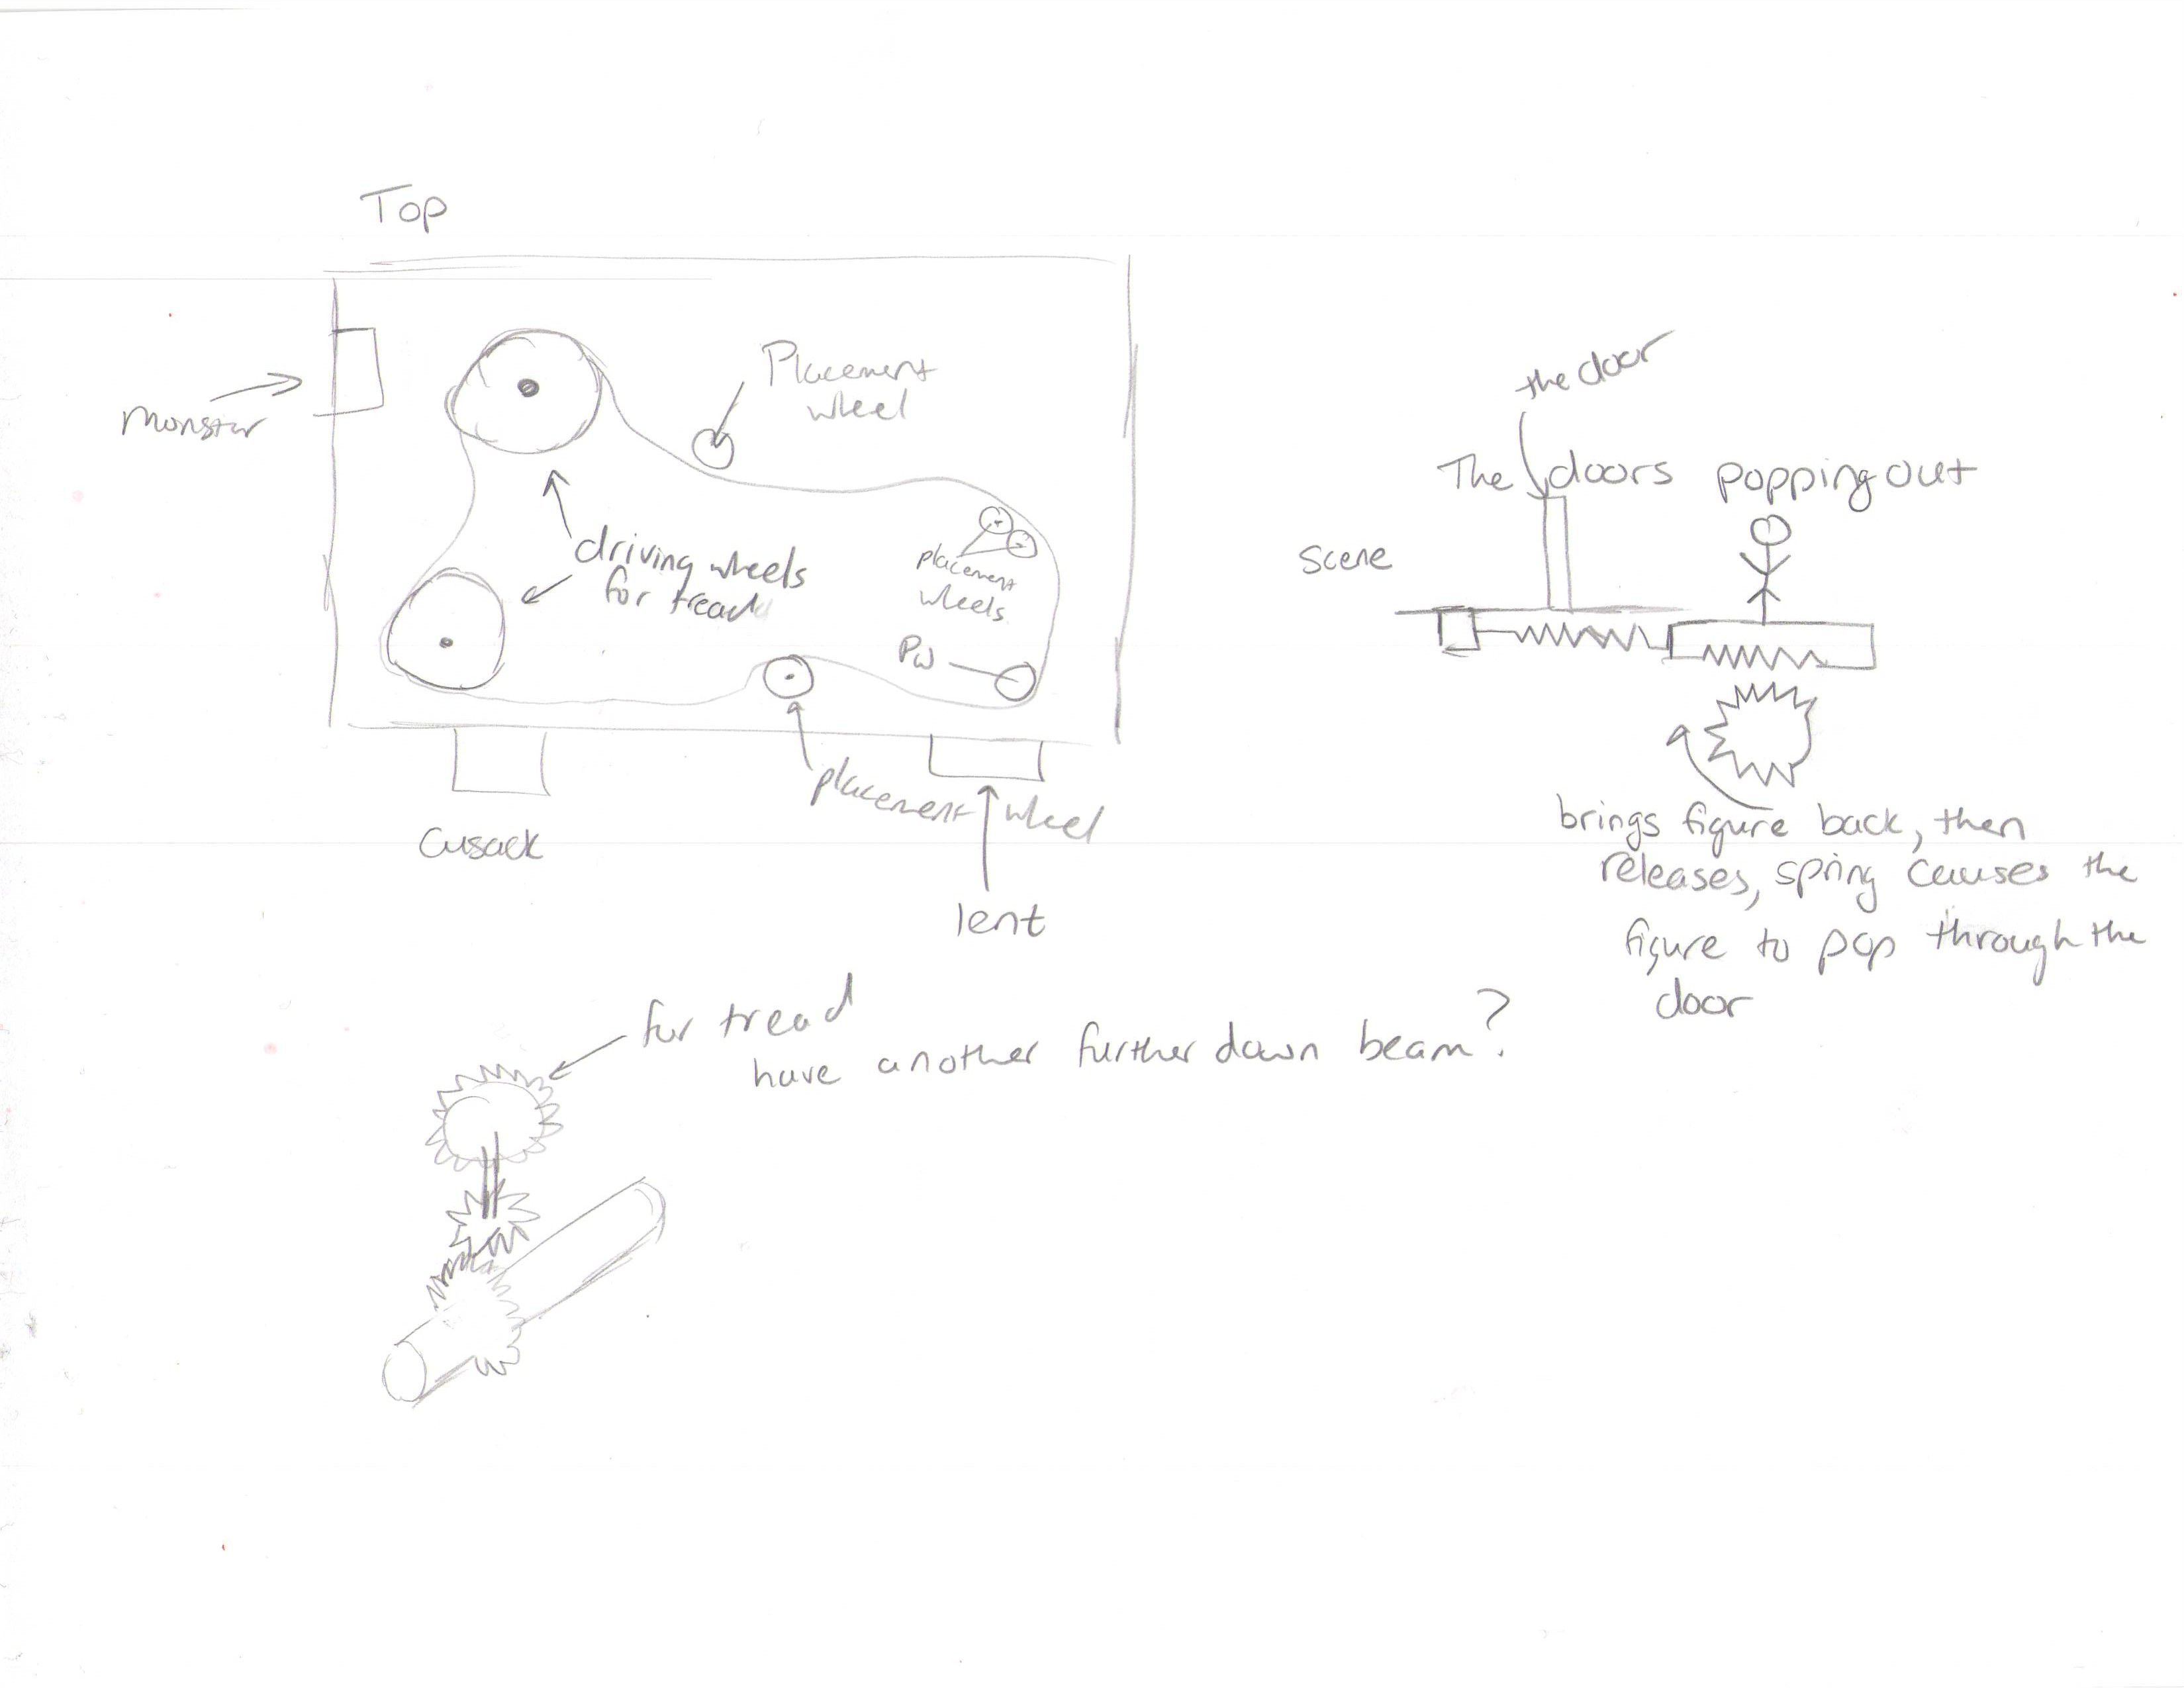 Top
Placement
wheel
Monster
driving wheels
for tread
placement
wheels
PW
placement wheel
Cusack
lent
the door
The doors popping out
scene
brings figure back, then
releases, spring causes the
figure to pop through the
door
for tread
have another further down beam?